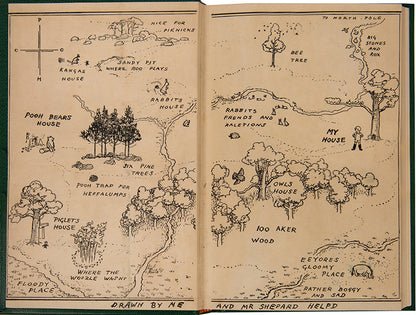 P
P
O
H
NICE FOR
PIKNICKS
SANDY PIT
WHERE ROO PLAYS
KANGAS
HOUSE
RABBITS
HOUSE
POOH BEARS
HOUSE
SIX PINE
TREES
POOH TRAP FOR
HEFFALUMPS
PIGLETS
HOUSE
WHERE THE
WOOZLE WASNT
FLOODY
PLACE
DRAWN BY ME
TO NORTH POLE
BIG
STONES
AND
ROX
BEE
TREE
RABBITS
FRENDS AND
RALETIONS
MY
HOUSE
OWLS
HOUSE
100 AKER
WOOD
EEYORES
GLOOMY
PLACE
RATHER BOGGY
AND SAD
AND MR SHEPARD HELPD